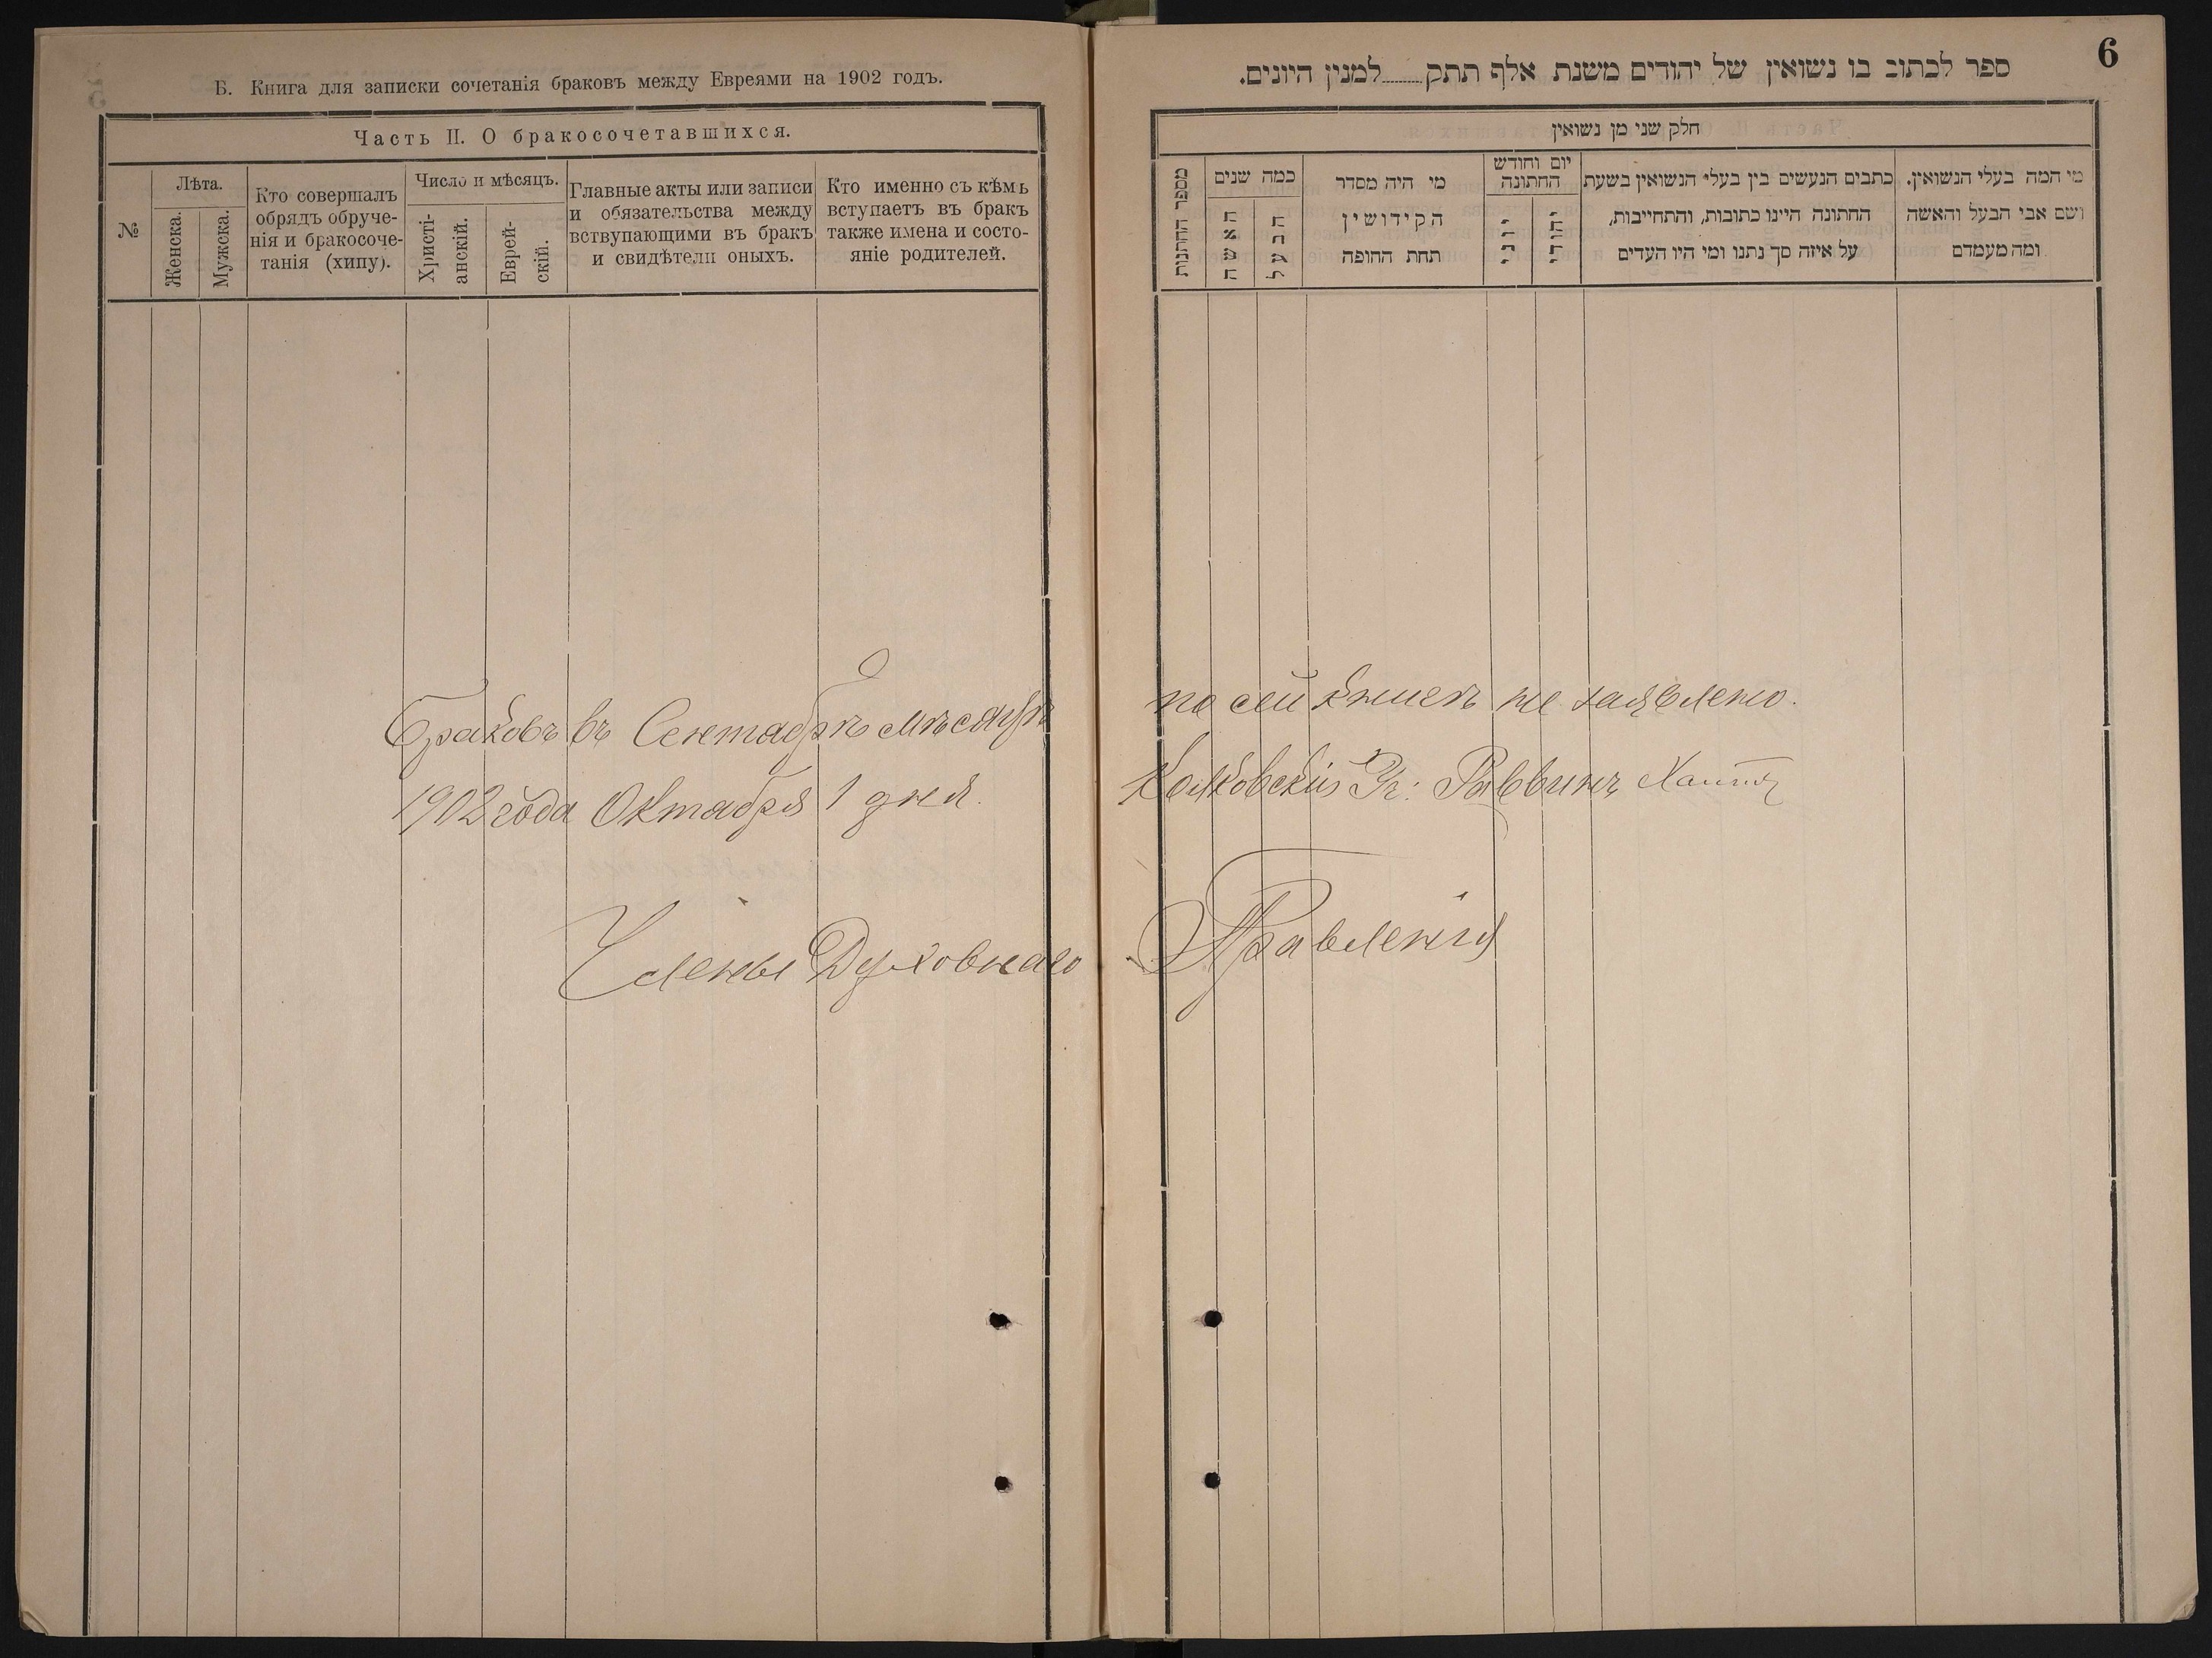 Б. Книга для записки сочетанія браковъ между Евреями на 1902 годъ.
Часть II. О бракосочетавшихся.
№
Лѣта.
Женска.
Мужска.
Кто совершалъ
обрядъ обруче-
нія и бракосоче-
танія (хипу).
Число и мѣсяцъ.
Христі-
анскій.
Еврей-
скій.
Главные акты или записи
и обязательства между
вствупающими въ бракъ
и свидѣтели оныхъ.
Кто именно съ кѣмъ
вступаетъ въ бракъ
также имена и состо-
яніе родителей.
6
ספר לכתוב בו נשואין של יהודים משנת אלף תתק........למנין היונים.
חלק שני מן נשואין
מספר החתונות
כמה שנים
האשה
הבעל
מי היה מסדר
הקידושין
תחת החופה
יום וחודש
החתונה
יוני
יהודי
כתבים הנעשים בין בעלי הנשואין בשעת
החתונה היינו כתובות, והתחייבות,
על איזה סך נתנו ומי היו העדים
מי המה בעלי הנשואין.
ושם אבי הבעל והאשה
ומה מעמדם
Браковъ въ Сентябрѣ мѣсяцѣ по сей книгѣ не заявлено.
1902 года Октября 1 дня. Колковскій Раввинъ
Члены Духовнаго Правленія